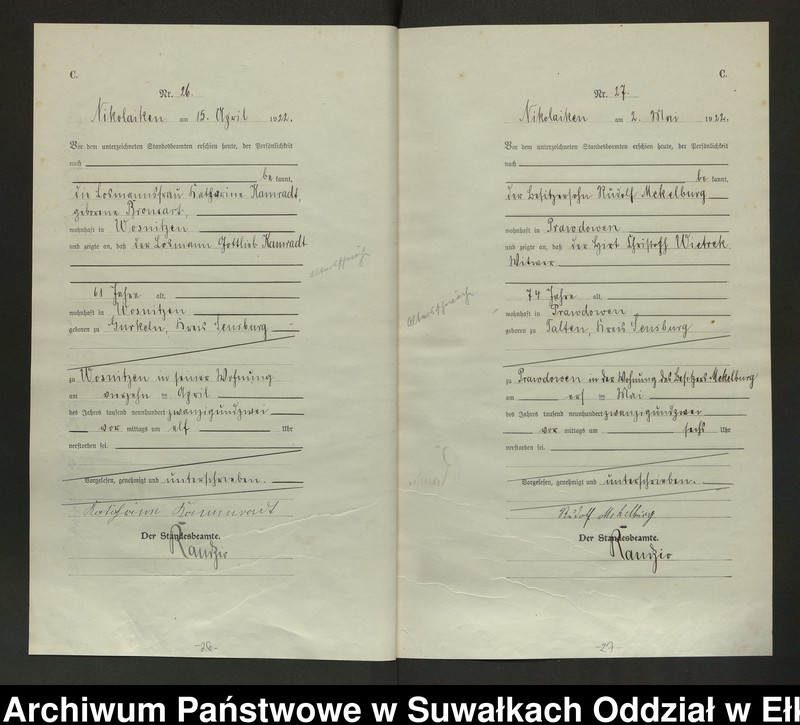 C.
Nr. 26.
Nikolaiken am 15. April 1922.
Vor dem unterzeichneten Standesbeamten erschien heute, der Persönlichkeit
nach
be kannt,
die Losmannsfrau Katharine Kamradt,
geborene Bronsart,
wohnhaft in Wosnitzen
und zeigte an, daß der Losmann Gottlieb Kamradt
Altersschwäche
61 Jahre alt,
wohnhaft in Wosnitzen
geboren zu Gurkeln, Kreis Sensburg
zu Wosnitzen in seiner Wohnung
am vierzehn ten April
des Jahres tausend neunhundert zwanzigundzwei
vor mittags um elf Uhr
verstorben sei.
Vorgelesen, genehmigt und unterschrieben.
Katharine Kammradt
Der Standesbeamte.
Kandzio
-26-
C.
Nr. 27.
Nikolaiken am 2. Mai 1922.
Vor dem unterzeichneten Standesbeamten erschien heute, der Persönlichkeit
nach
be kannt,
der Besitzersohn Rudolf Mekelburg
wohnhaft in Prawdowen
und zeigte an, daß der Hirt Christoff Wietrek
Witwer
Altersschwäche
74 Jahre alt,
wohnhaft in Prawdowen
geboren zu Talten, Kreis Sensburg
zu Prawdowen in der Wohnung des Besitzers Mekelburg
am ers ten Mai
des Jahres tausend neunhundert zwanzigundzwei
vor mittags um sechs Uhr
verstorben sei.
Vorgelesen, genehmigt und unterschrieben.
Rudolf Mekelburg
Der Standesbeamte.
Kandzio
-27-
Archiwum Państwowe w Suwałkach Oddział w Ełk